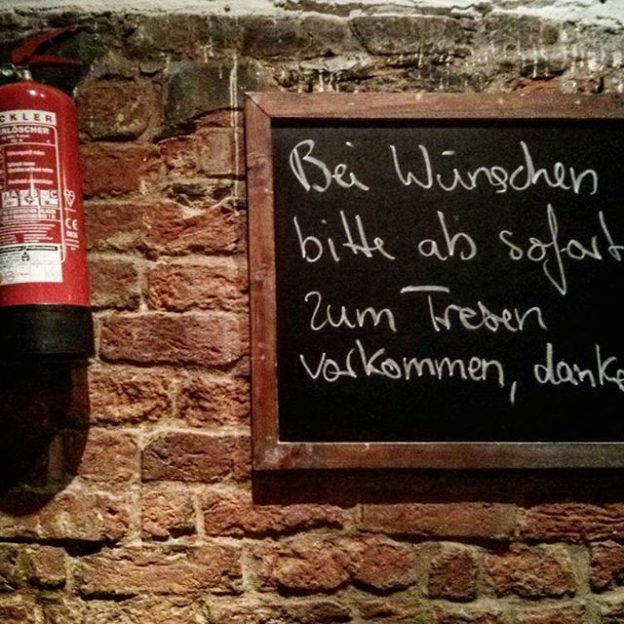 CKLER
ERLÖSCHER
Bei Wünschen
bitte ab sofort
zum Tresen
vorkommen, danke